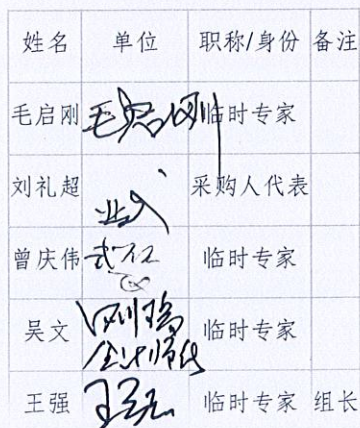 姓名 单位 职称/身份 备注
毛启刚 毛启刚 临时专家
刘礼超 采购人代表
曾庆伟 临时专家
吴文 临时专家
王强 临时专家 组长